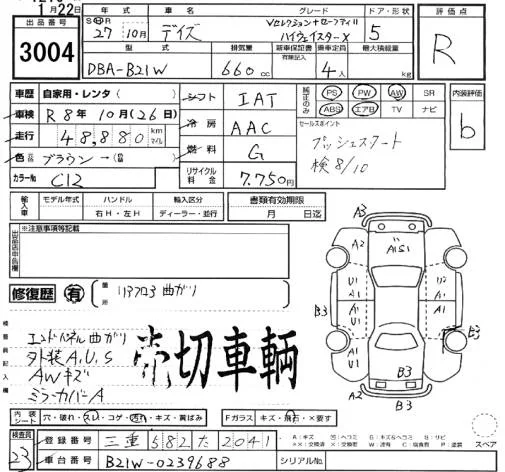 1月22日
出品番号
3004
年式
車名
グレード
ドア・形状
評価点
27年10月
デイズ
Vセレクション+セーフティII
ハイウェイスターX
5
R
型式
排気量
新車保証書
有無記入
乗車定員
最大積載量
DBA-B21W
660cc
4人
kg
車歴 自家用・レンタ
シフト IAT
純正のみ
PS PW AW SR
ABS エアB TV ナビ
内装評価
b
車検 R8年10月(26日)
冷房 AAC
セールスポイント
プッシュスタート
検8/10
走行 48,880 km
マイル
燃料 G
色 ブラウン→
カラーNo C12
リサイクル料金 7,750円
輸入車
モデル年式
ハンドル
右H・左H
輸入区分
ディーラー・並行
書類有効期限
月 日迄
出品店申告欄
※注意事項等記載
修復歴 有
箇所
リアフロア 曲がり
検査員記入欄
エンドパネル曲がり
外装A,U,S
AWキズ
ミラーカバーA
売切車輌
A3
A2
A1S1
A3
U1
A1
B3
A2
U1
U1
U1
B3
A1
U1
B3
A3
内装シート
穴・破れ・スレ・コゲ・汚れ・キズ・黄ばみ
Fガラス
キズ・飛石・×要す
A:キズ U:凹ヘコミ B:凹ヘコミ G:キズ&ヘコミ S:サビ
スペア
検査員
23
登録番号 三重 582 た 2041
車台番号 B21W-0239688
シリアルNo.